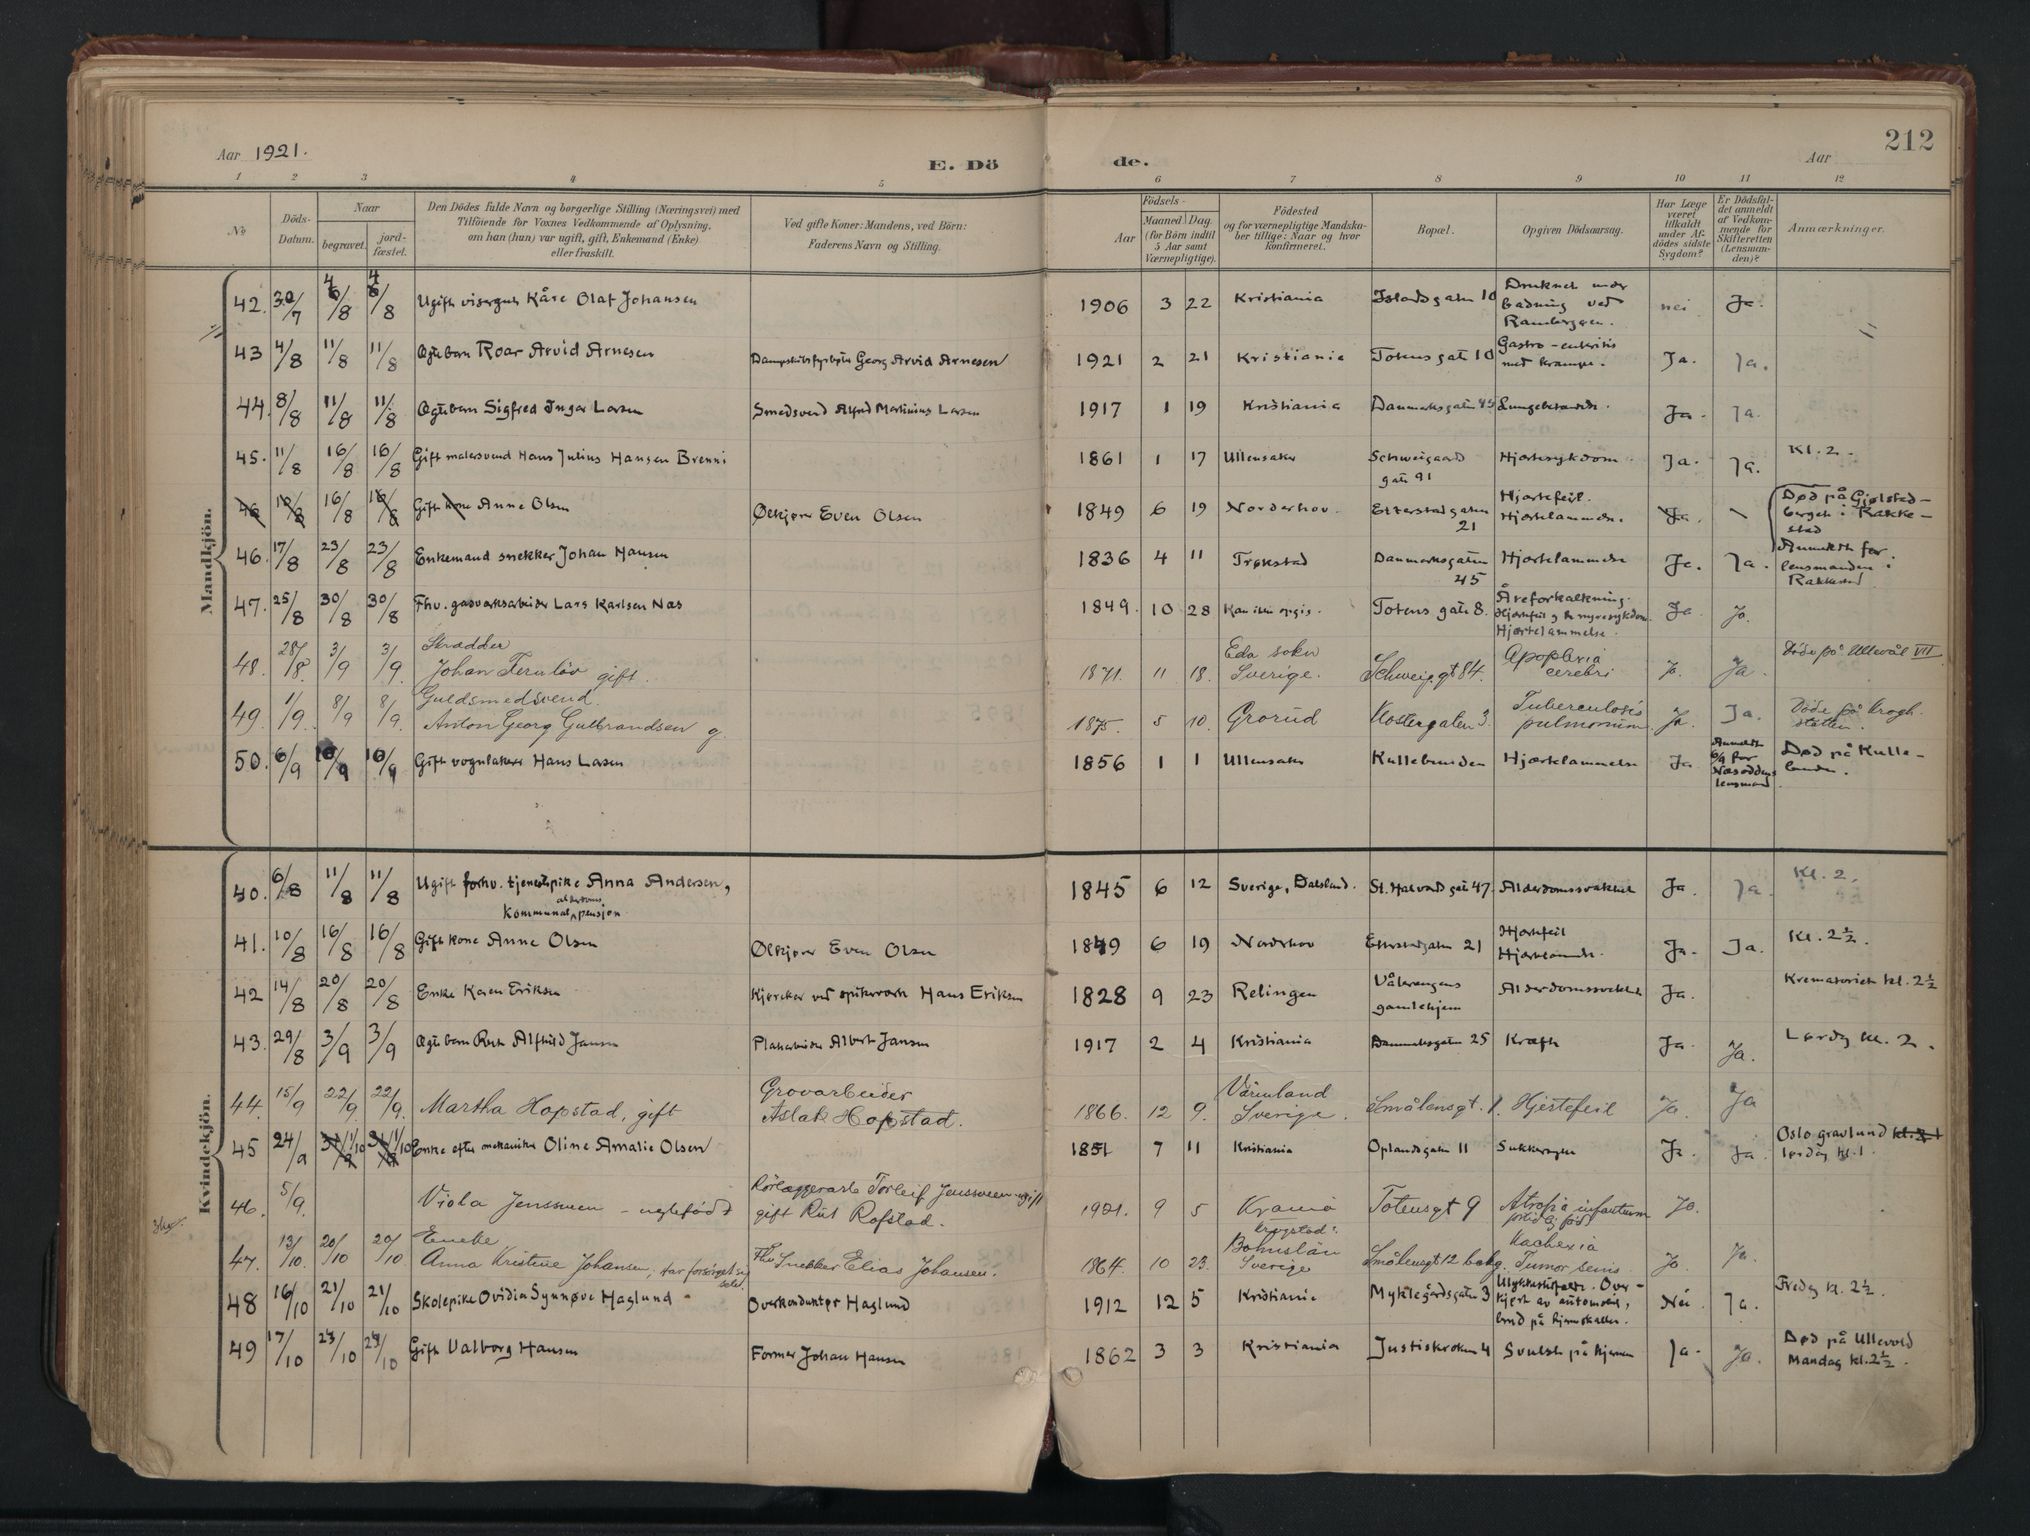 Aar 1921.
E. Dö de.
Aar
212
1 2 3 4 5 6 7 8 9 10 11 12
No
Döds-Datum.
Naar
begravet.
jord-fæstet.
Den Dödes fulde Navn og borgerlige Stilling (Næringsvei) med
Tilföiende for Voxnes Vedkommende af Oplysning,
om han (hun) var ugift, gift, Enkemand (Enke)
eller fraskilt.
Ved gifte Koner: Mandens, ved Börn:
Faderens Navn og Stilling.
Födsels-
Aar
Maaned Dag
(for Börn indtil
5 Aar samt
Værnepligtige).
Födested
og for værnepligtige Mandska-
ber tillige: Naar og hvor
konfirmeret.
Bopæl.
Opgiven Dödsaarsag.
Har Læge
været
tilkaldt
under Af-
dödes sidste
Sygdom?
Er Dödsfal-
det anmeldt
af Vedkom-
mende for
Skifteretten
(Lensman-
den)?
Anmærkninger.
Mandkjön.
42. 30/7 6/8 6/8 Ugift visergut Kåre Olaf Johansen 1906 3 22 Kristiania Islandsgaten 10 Druknet under badning ved nei Ja.
43 4/8 11/8 11/8 Roar Arvid Arnesen Georg Arvid Arnesen 1921 2 21 Kristiania Totensgatn 10 Gastro-enteritis med krampe. Ja. Ja.
44. 8/8 11/8 11/8 Sigfred Inger Larsen Smedsvend Alfred Martinius Larsen 1917 1 19 Kristiania Danmarksgaten 45 Ja. Ja.
45. 11/8 16/8 16/8 Gift malersvend Hans Julius Hansen Brenni 1861 1 17 Ullensaker Schweigaards gate 91 Hjertesykdom. Ja. Ja. Kl. 2.
46 10/8 16/8 16/8 Gift kone Anne Olsen Ølkjører Even Olsen 1849 6 19 Norderhov. Etterstadgaten 21 Hjertefeil. Hjertelammelse. Ja. Død på Gjølstad-
bergeti Rakke-
stad
46. 17/8 23/8 23/8 Enkemand snekker Johan Hansen 1836 4 11 Trøkstad Danmarksgaten 45 Hjertelammelse Ja. Ja. Anmeldt for
lensmanden i
Rakkestad
47. 25/8 30/8 30/8 Fhv. gasverksarbeider Lars Karlsen Næs 1849. 10 28 Kan ikke opgis. Totens gate 8. Åreforkalkning. Hjertefeil og nyresykdom. Hjertelammelse. Ja Ja.
48. 28/8 3/9 3/9. Skrædder Johan Fernlöv gift. 1871. 11 18. Eda sokn Sverige. Schweig.gt 84. Apoplexia cerebri J. Ja. Döde på Ullevål VII
49. 1/9. 8/9 8/9. Guldsmedsvend. Anton Georg Gulbrandsen g. 1875. 5 10. Grorud Klostergaten 3. Tuberculosis pulmonum. Ja. Ja. Döde på Krogh-
stötten.
50. 6/9 10/9 10/9 Gift vognlakerer Hans Larsen 1856 1 1 Ullensaker Kullebunden Hjertelammelse Ja Anmeldt 6/9 for Næsoddens lensmand Død på Kulle-
bunden.
Kvindekjön.
40. 6/8 11/8 11/8 Ugift forhv. tjenestepike Anna Andersen, kommunal alderdoms pensjon. 1845 6 12 Sverige, Dalsland. St. Halvards gate 47. Alderdomssvakhet Ja. Ja. Kl. 2.
41. 10/8 16/8 16/8 Gift kone Anne Olsen Ølkjører Even Olsen 1849 6 19 Norderhov Etterstadgaten 21 Hjertefeil Hjertelammelse. Ja. Ja. Kl. 2½.
42 14/8 20/8 20/8 Enke Karen Eriksen ved spikerverk Hans Eriksen 1828 9 23 Relingen Vålerengens gamlehjem Alderdomssvakhet Ja. Krematoriet kl. 2½
43. 29/8 3/9 3/9 Alfhild Jansen Albert Jansen 1917 2 4 Kristiania Danmarksgaten 25 Kræft Ja. Ja. Lørdag kl. 2.
44. 15/9 22/9. 22/9. Martha Hopstad, gift Grovarbeider Aslak Hopstad. 1866. 12 9. Värmland Sverige. Smålensgt. 1. Hjertefeil Ja. Ja
45 24/9 1/10 1/10 Enke efter mekaniker Oline Amalie Olsen 1851 7 11 Kristiania Oplandsgaten 11 Sukkersyke Ja. Ja. Oslo gravlund
lørdag kl. 1.
46. 5/9. Viola Jenssveen - uegtefödt Törleif Jenssveen ugift gift Rut Rofstad. 1921. 9 5 Krania Totensgt 9 Atrofia infantum Ja.
47. 13/10. 20/10 20/10 Enke Anna Kristine Johansen, har forsörget sig selv Fhv. Snekker Elias Johansen. 1864. 10 23. Krogstad: Bohuslän Sverige Smålensgt 12 bakg. Kachexia Tumor Ja. Ja.
48 16/10 21/10 21/10 Skolepike Ovidia Synnøve Haglund Overkonduktør Haglund 1912 12 5 Kristiania Myklegårdsgaten 3 Ulykkestilfælde. Over-
kjørt av automobil, brud på hjerneskallen. Nei. Ja. Fredag kl. 2½.
49 17/10 24/10 24/10 Gift Valborg Hansen Former Johan Hansen 1862 3 3 Kristiania Justiskroken 4 Svulst på hjernen Ja. Ja. Død på Ullevold
Mandag kl. 2½.